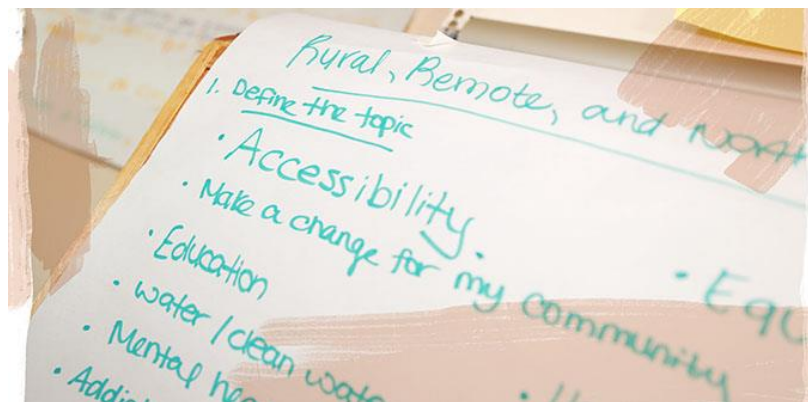 Rural, Remote, and
1. Define the topic
• Accessibility.
• Make a change for my community
• Education
• water / clean
• Mental